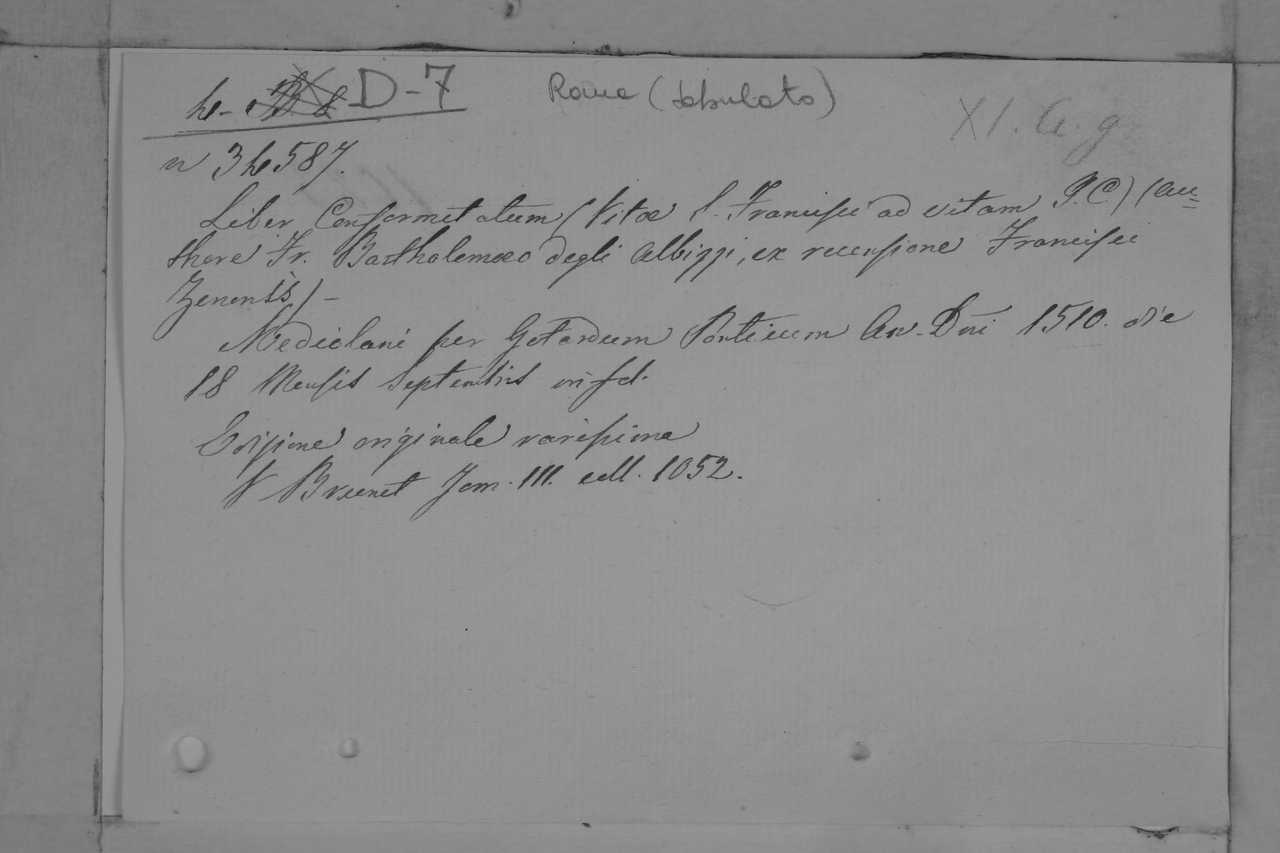 4- D-7 Roma (tabulato) XI. G. g
n 34587.
Liber Conformitatum (Vitæ S. Francisci ad vitam J.C.) (Au=
thore Fr. Bartholemæo degli Albizzi, ex recensione Francisci
Zenonis) -
Mediolani per Gotardum Ponticum An. Dni 1510. die
18 Mensis Septembris in fol.
Edizione originale rarissima
V Brunet Tom. III. coll. 1052.